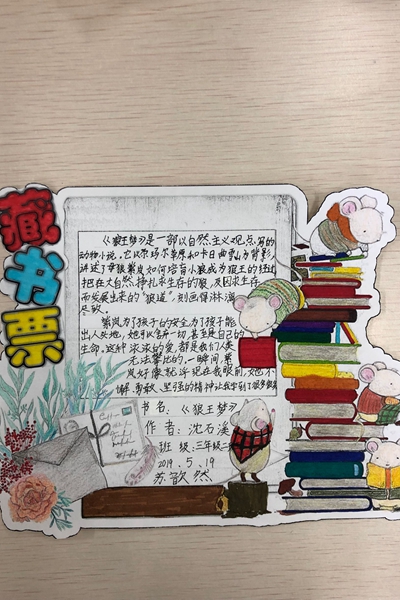 藏书票
《狼王梦》是一部以自然主义观点写的
动物小说。它以尕玛尔草原和卡日曲雪山为背影，
讲述了母狼紫岚如何培育小狼成为狼王的经过
把在大自然挣扎求生存的狼，及因求生存
而发展出来的"狼道"，刻画得淋漓
尽致。
紫岚为了孩子的安全，为了孩子能
出人头地，她可以舍弃一切，甚至是自己的
生命。这种浓浓的爱，都是我们人类
无法攀比的。一瞬间，紫
岚好像就浮现在我眼前，她不
懈、勇敢、坚强的精神让我学到了很多
书名：《狼王梦》
作者：沈石溪
班级：三年级二
2019.5.19
苏歆然